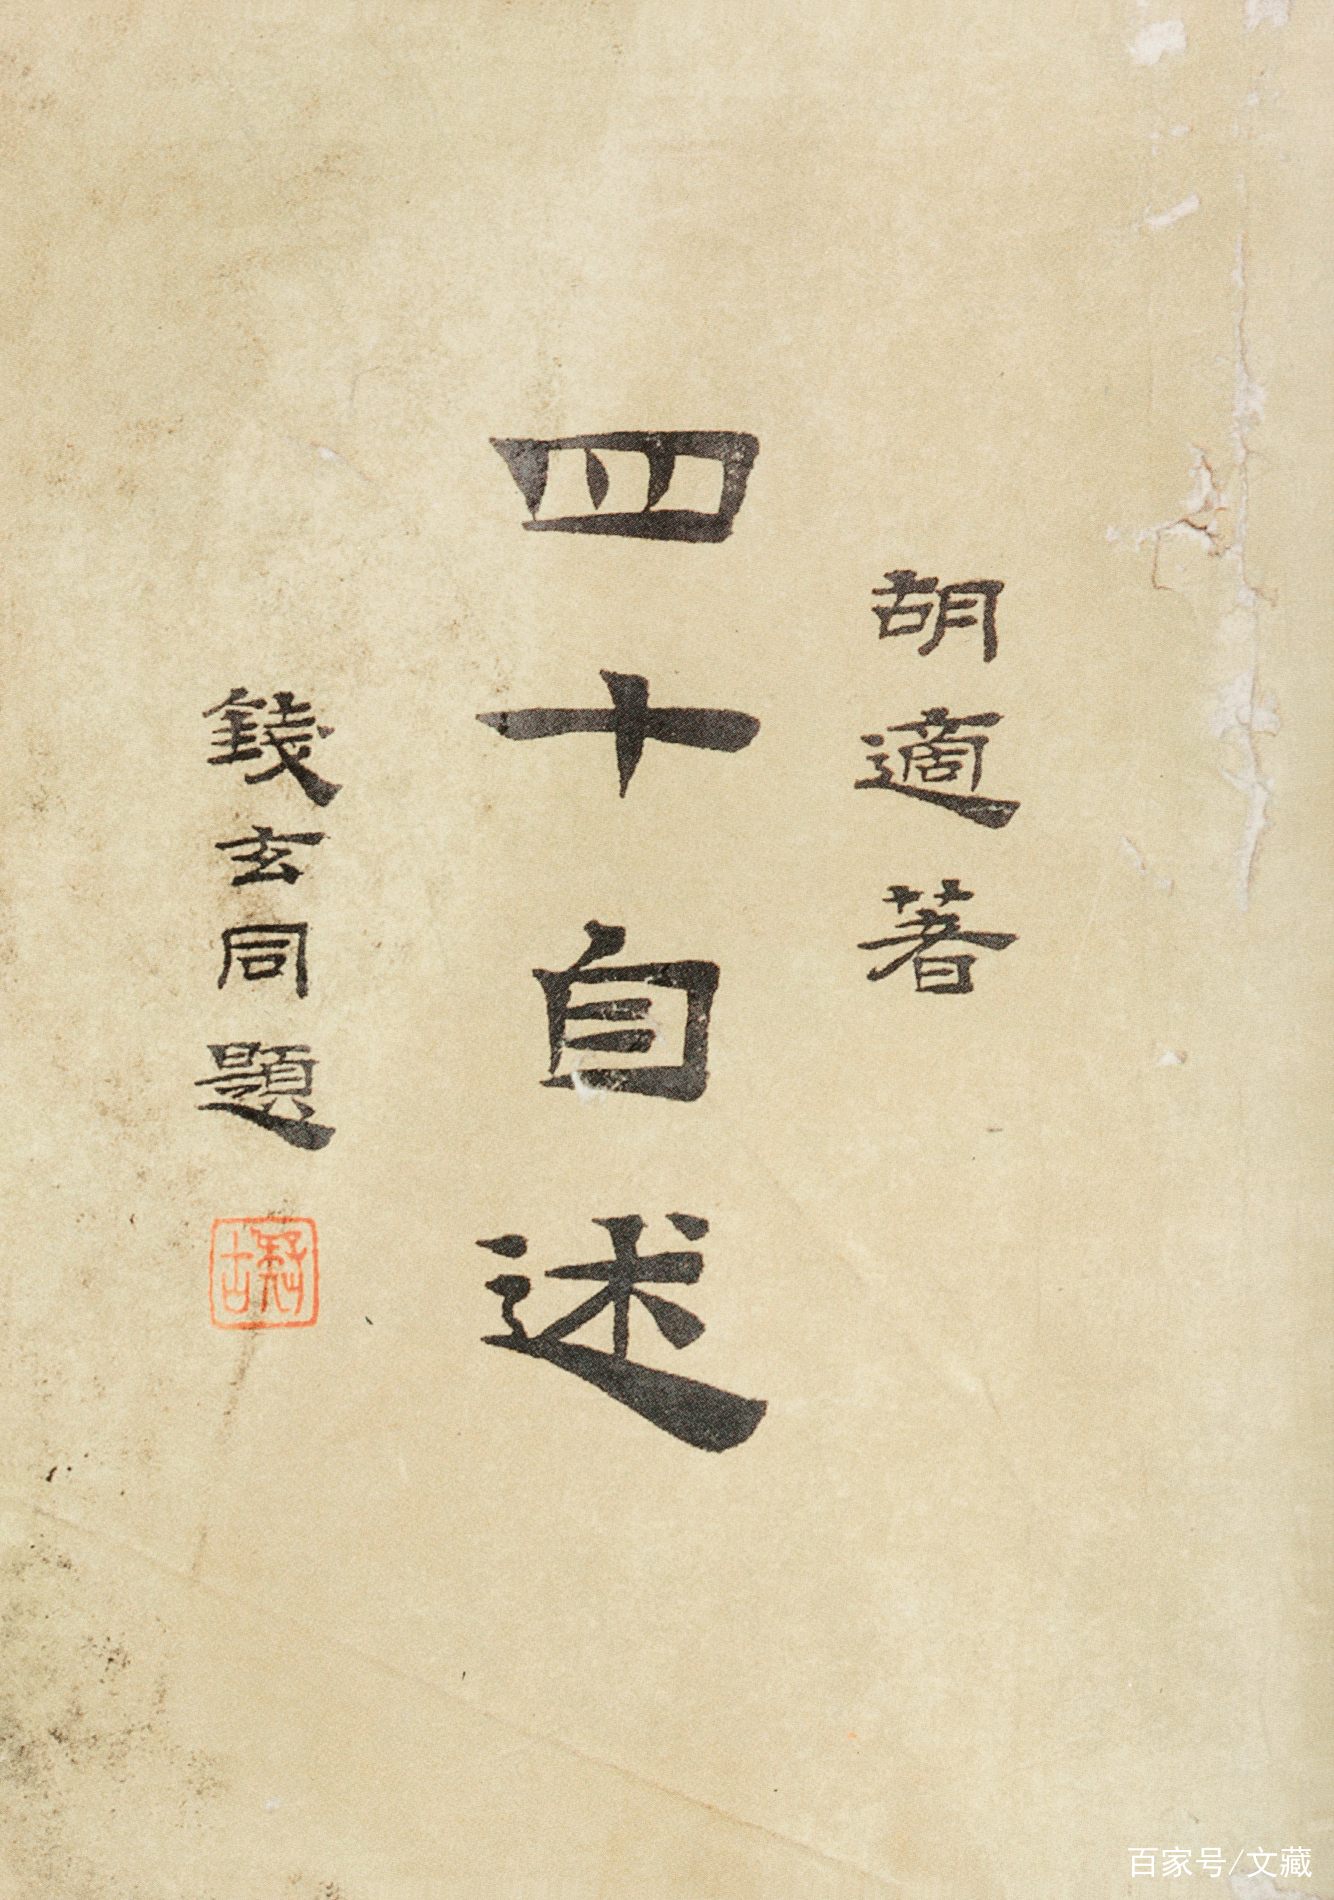 胡適著
四十自述
錢玄同題
百家号/文藏